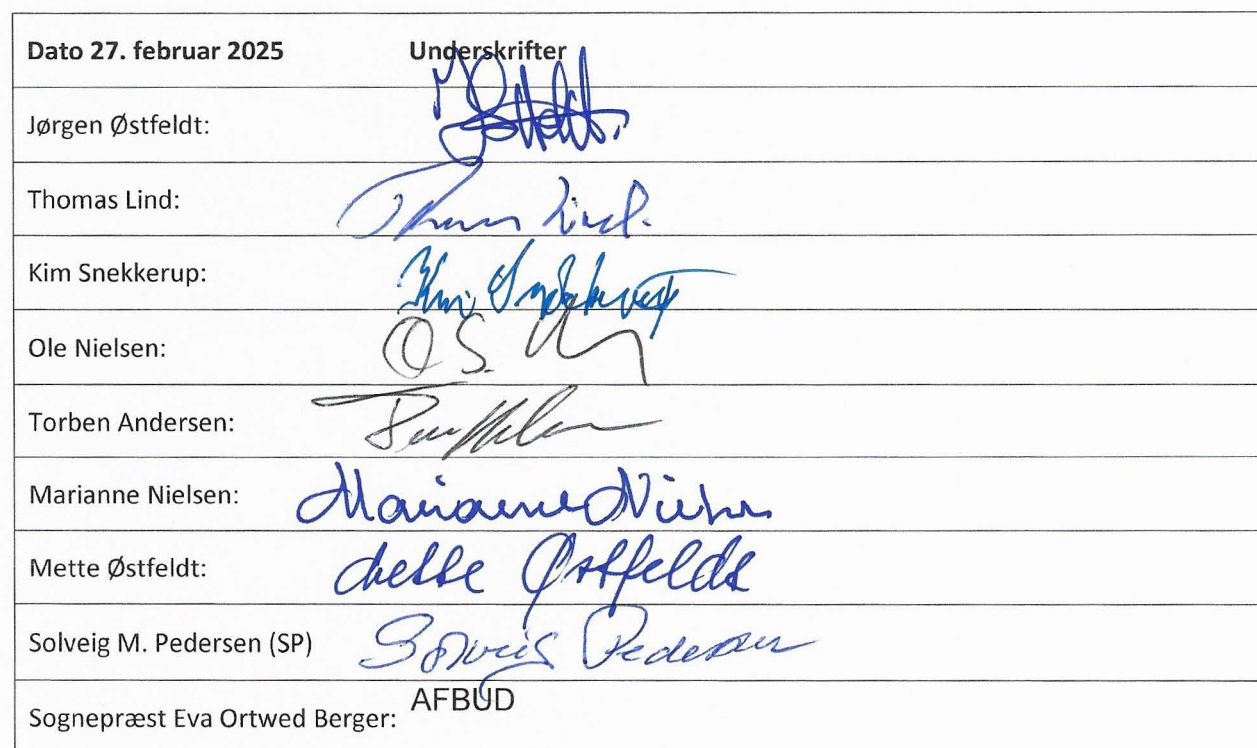 Dato 27. februar 2025 Underskrifter
Jørgen Østfeldt:
Thomas Lind: Thomas Lind.
Kim Snekkerup: Kim
Ole Nielsen: O S.
Torben Andersen:
Marianne Nielsen: Marianne Nielsen
Mette Østfeldt: Mette Østfeldt
Solveig M. Pedersen (SP) Solveig Pedersen
AFBUD
Sognepræst Eva Ortwed Berger: